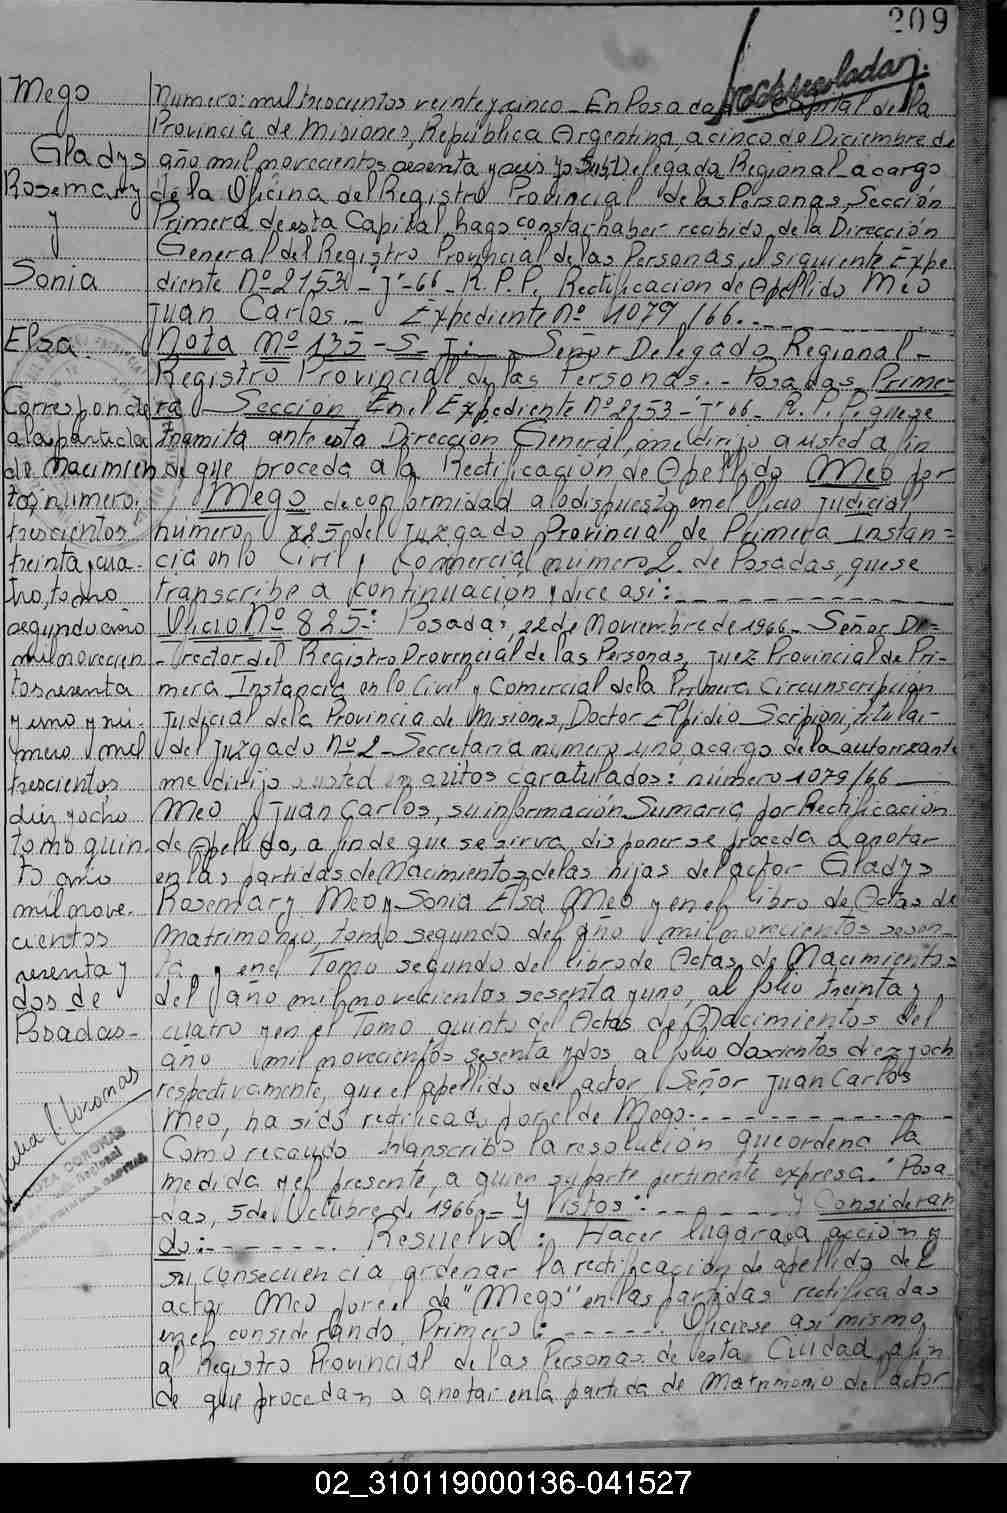 209
Mego
Gladys
Rosemary
y
Sonia
Elsa.
Corresponde
a la partida
de Nacimien
tos número
trescientos
treinta y cua-
tro, tomo
segundo año
mil novecien
tos sesenta
y uno y nú-
mero mil
trescientos
diez y ocho
tomo quin-
to año
mil nove-
cientos
sesenta y
dos de
Posadas-
Numero: mil trescientos veinte y cinco - En Posadas Capital de la
Provincia de Misiones, República Argentina, a cinco de Diciembre de
año mil novecientos sesenta y seis yo Sub Delegado Regional a cargo
de la Oficina del Registro Provincial de las Personas, Sección
Primera de esta Capital, hago constar haber recibido de la Dirección
General del Registro Provincial de las Personas, el siguiente Expe
diente Nº 2153 - "J" - 66 - R.P.P. Rectificacion de Apellido Meo
Juan Carlos. - Expediente nº 1079/66. -
Nota Nº 135 - S. J: - Señor Delegado Regional -
Registro Provincial de las Personas. - Posadas Prime-
ra Sección En el Expediente nº 2153 - "J" 66 - R.P.P. que se
tramita ante esta Dirección General, me dirijo a usted a fin
de que proceda a la Rectificación de Apellido Meo por
Mego de conformidad a lo dispuesto en el Oficio Judicial
número 825 del Juzgado Provincial de Primera Instan=
cia en lo Civil y Comercial número 2 de Posadas, que se
transcribe a continuación y dice asi: -
Oficio Nº 825: Posadas, 22 de Noviembre de 1966 - Señor Di=
- rector del Registro Provincial de las Personas, Juez Provincial de Pri-
mera Instancia en lo Civil y Comercial de la Primera Circunscripción
Judicial de la Provincia de Misiones, Doctor Elpidio Scripioni, titular
del Juzgado Nº 2 - Secretaria número uno a cargo de la autorizante
me dirijo a usted en autos caratulados: número 1079/66
Meo Juan Carlos, su información Sumaria por Rectificación
de Apellido, a fin de que se sirva disponer se proceda a anotar
en las partidas de Nacimientos de las hijas del actor Gladys
Rosemary Meo y Sonia Elsa Meo y en el libro de Actas de
Matrimonio, tomo segundo del año mil novecientos sesen-
ta y en el Tomo segundo del libro de Actas de Nacimientos
del año mil novecientos sesenta y uno, al folio treinta y
cuatro y en el Tomo quinto del Actas de Nacimientos del
año mil novecientos sesenta y dos al folio doscientos diez y och
respectivamente, que el apellido del actor Señor Juan Carlos
Meo, ha sido rectificado por el de Mego. -
Como recaudo transcribo la resolución que ordena la
medida y el presente, a quien su parte pertinente expresa: "Posa-
das, 5 de Octubre de 1966, - Y Vistos: - y Consideran
do: - Resuelvo: Hacer lugar a la acción y
su consecuencia ordenar la rectificación de apellido del
actor Meo por el de "Mego" en las partidas rectificadas
en el considerando Primero: - Oficiese asi mismo,
al Registro Provincial de las Personas de esta Ciudad, a fin
de que procedan a anotar en la partida de Matrimonio del actor
02_310119000136-041527